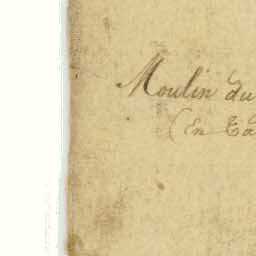 Moulin du
(En Ca